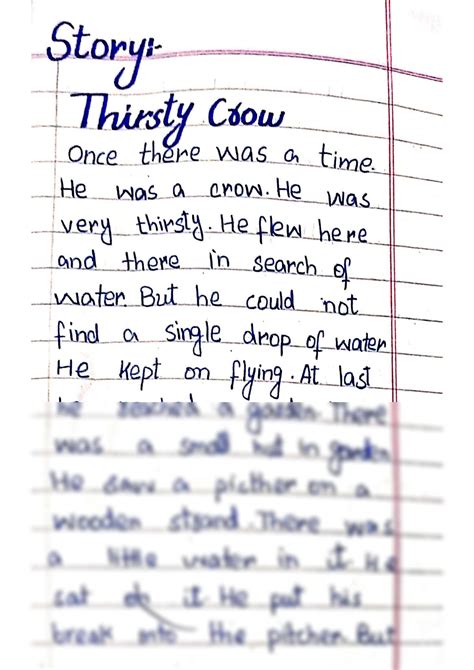 Story:-
Thirsty Crow
Once there was a time.
He was a crow. He was
very thirsty. He flew here
and there in search of
water. But he could not
find a single drop of water
He kept on flying. At last
he reached a garden. There
was a small hut in garden
He saw a picther on a
wooden There was
a little water in it He
sat it He put his
break into the pitcher. But